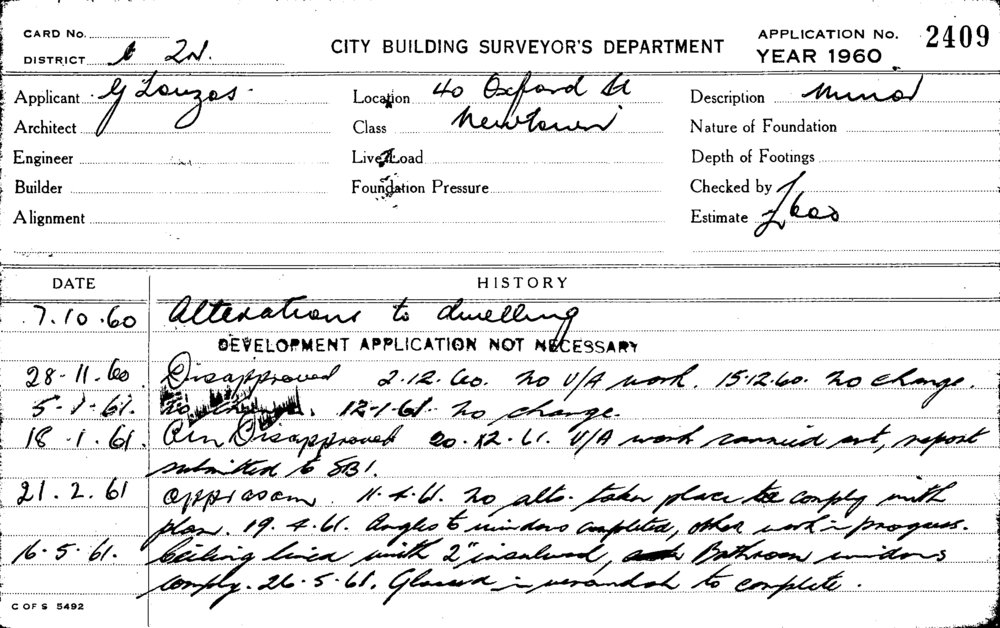 CARD No.
DISTRICT 2d.
CITY BUILDING SURVEYOR'S DEPARTMENT
APPLICATION No. 2409
YEAR 1960
Applicant G Louzas.
Location 40 Oxford St
Description Minor
Architect
Class Newtown
Nature of Foundation
Engineer
Live Load
Depth of Footings
Builder
Foundation Pressure
Checked by
Alignment
Estimate £600
DATE HISTORY
7.10.60 Alterations to dwelling
DEVELOPMENT APPLICATION NOT NECESSARY
28-11.60. Disapproved 2.12.60. No U/A work. 15.12.60. No change.
5-1-61. No change. 12-1-61. No change.
18.1.61. Disapproved U/A work carried out, report
submitted to SB1.
21.2.61 11.4.61. No alts. taken place to comply with
plan. 19.4.61. Angles to windows completed, other work in progress.
16.5.61. Ceiling lined with 2" Bathroom windows
comply. 26.5.61. Glassed in verandah to complete.
C OF S 5492